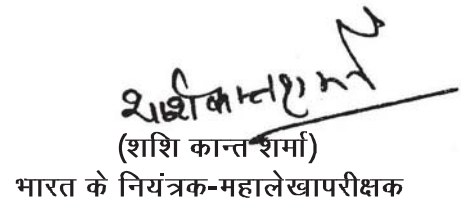 शशिकान्त शर्मा
(शशि कान्त शर्मा)
भारत के नियंत्रक-महालेखापरीक्षक